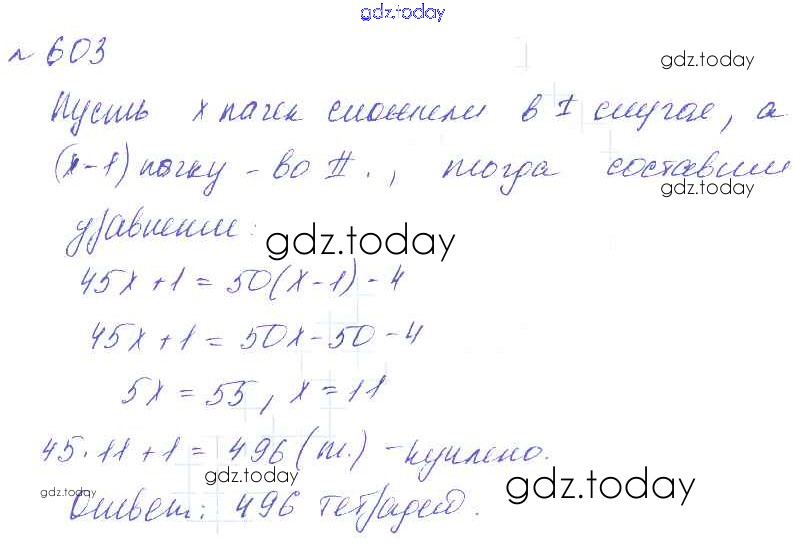 gdz.today
№ 603
gdz.today
Пусть x пачек сложили в I случае, а
(x-1) пачку - во II., тогда составим
gdz.today
уравнение:
gdz.today
45x+1=50(x-1)-4
45x+1=50x-50-4
5x=55, x=11
45·11+1=496(т.) - куплено.
gdz.today
gdz.today
gdz.today
Ответ: 496 тетрадей.